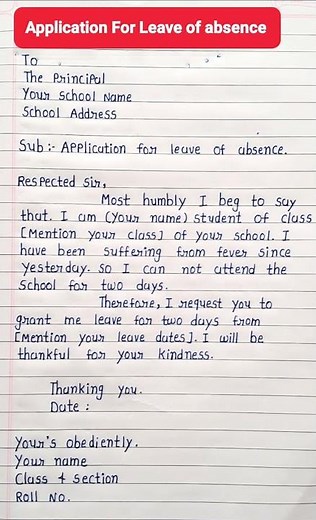 Application For Leave of absence
To
The Principal
Your School Name
School Address
Sub:- Application for leave of absence.
Respected Sir,
Most humbly I beg to say
that. I am (Your name) student of class
[Mention your class] of your school. I
have been suffering from fever since
yesterday. so I can not attend the
School for two days.
Therefore, I request you to
grant me leave for two days from
[Mention your leave dates]. I will be
thankful for your kindness.
Thanking you.
Date :
Your's obediently.
Your name
Class & section
Roll No.